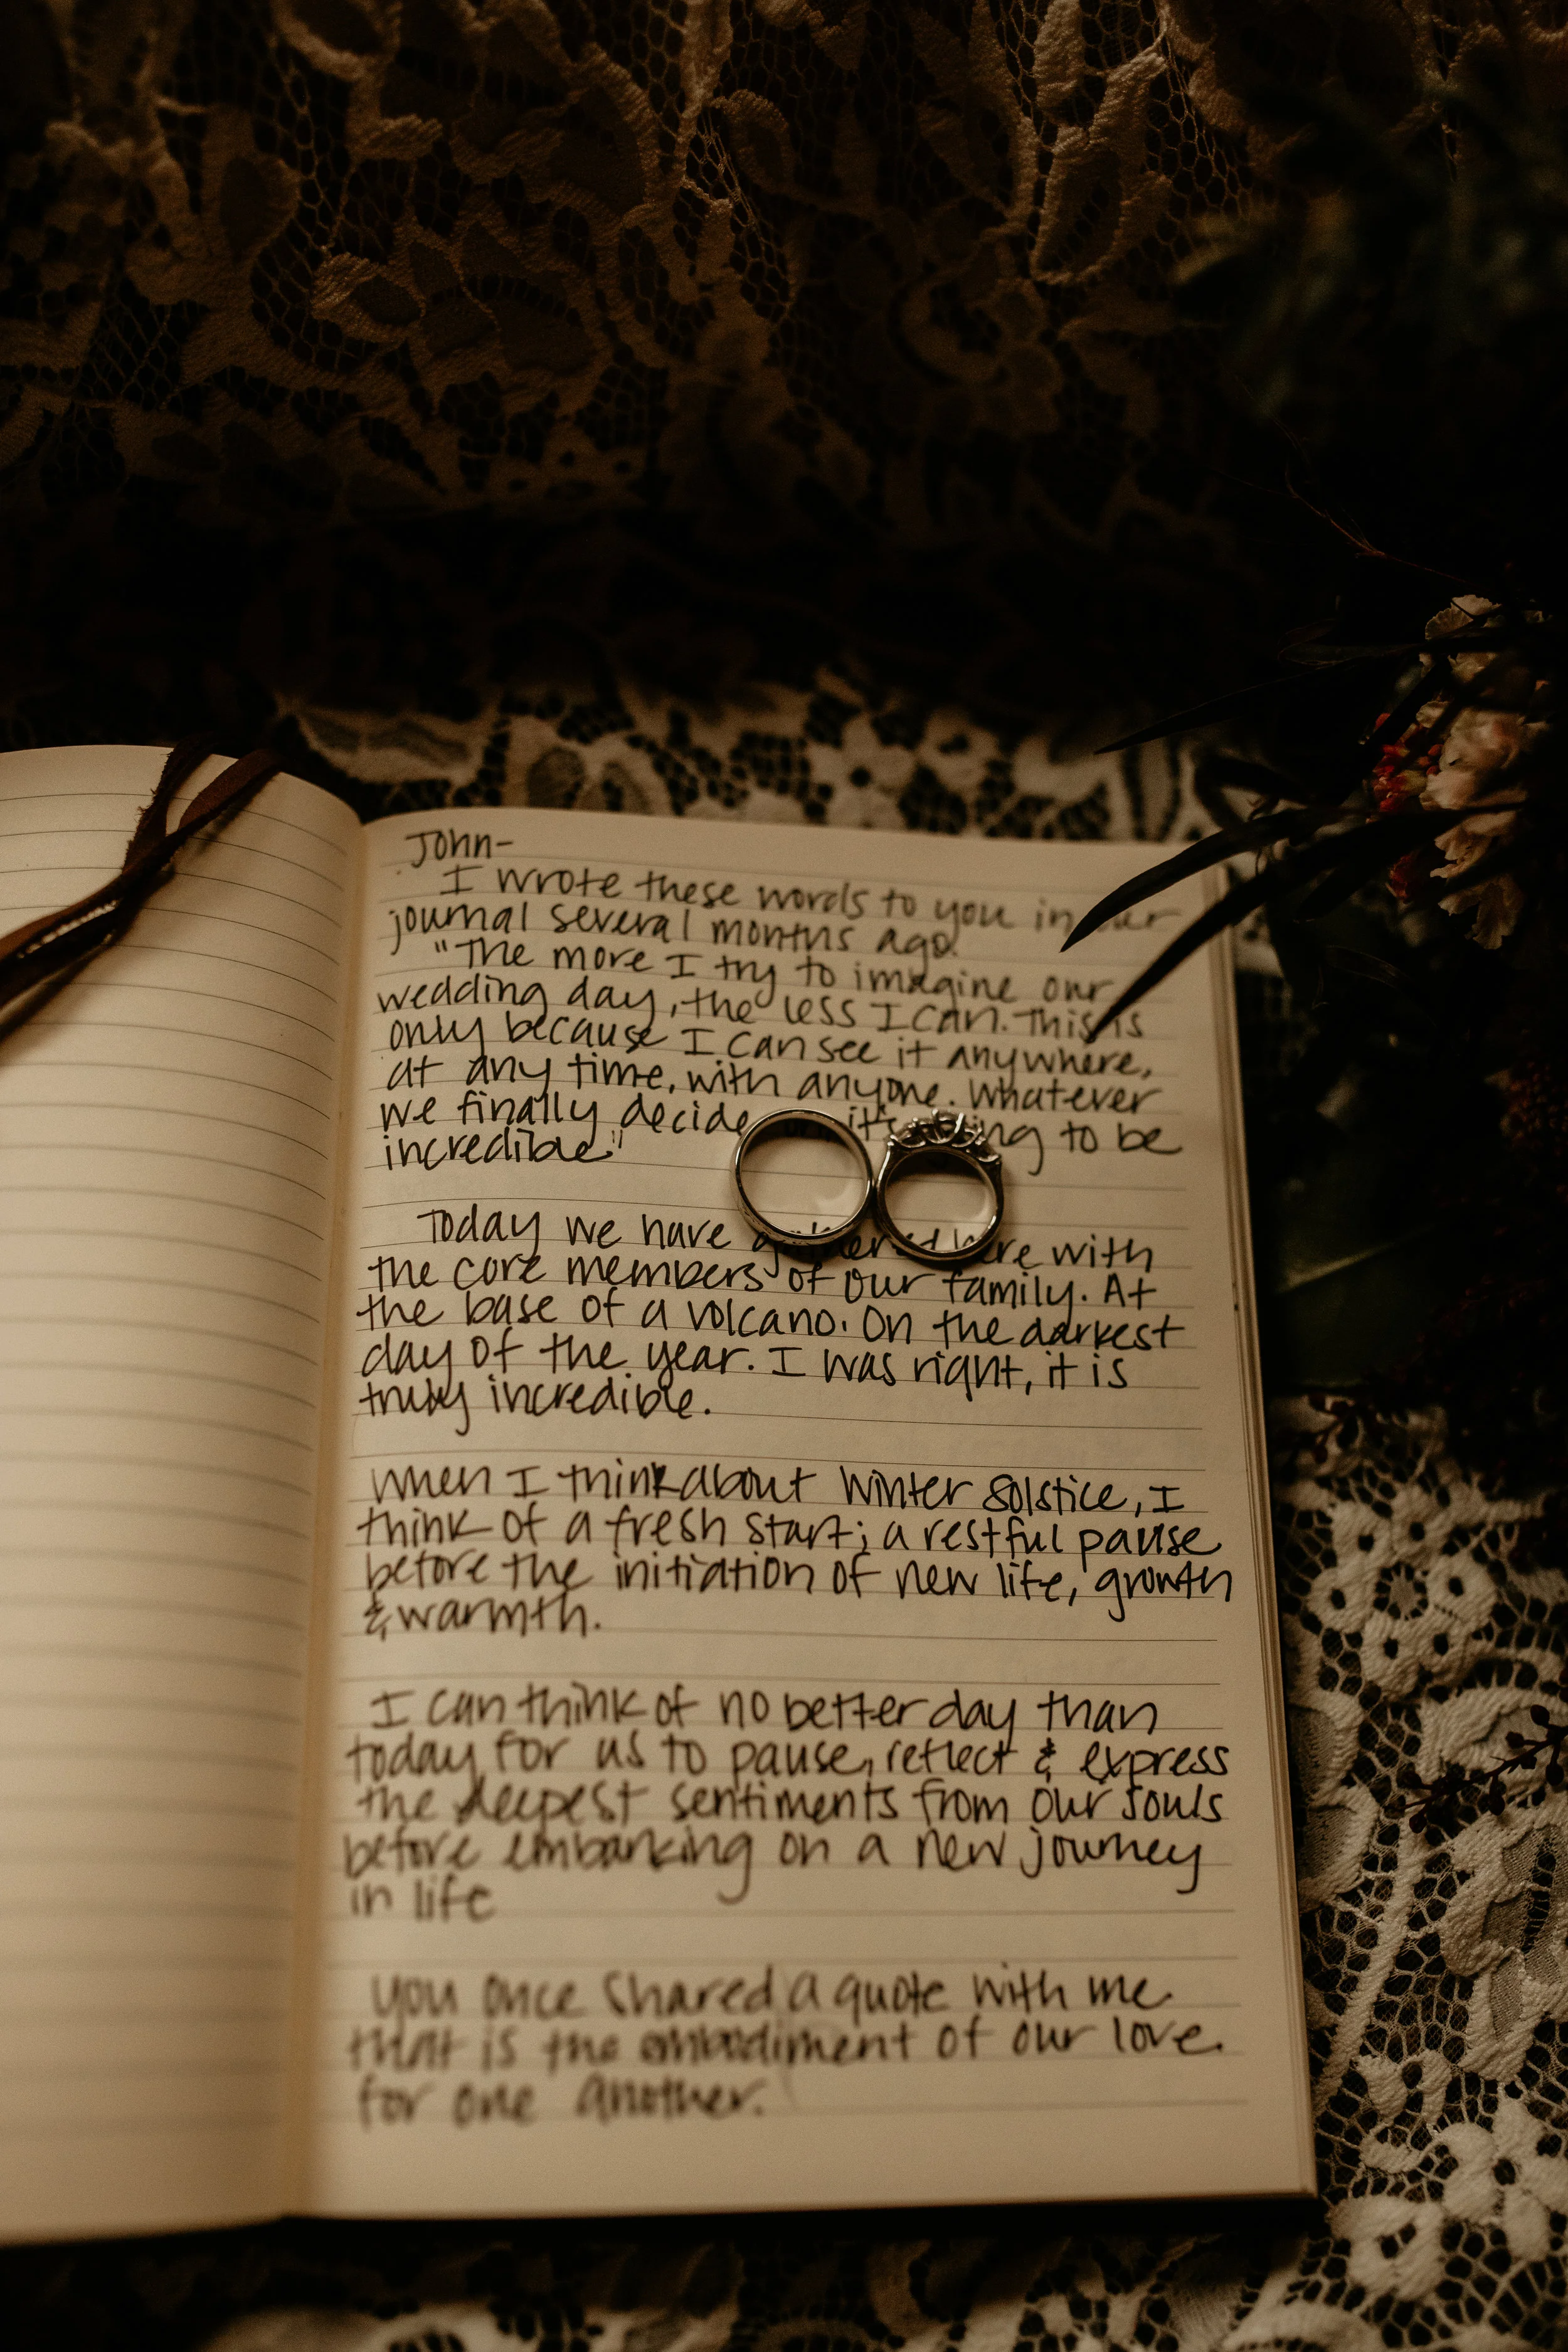 John-
I wrote these words to you in our
journal several months ago.
"The more I try to imagine our
wedding day, the less I can. This is
only because I can see it anywhere,
at any time, with anyone. Whatever
we finally decide it's going to be
incredible."
Today we have gathered here with
the core members of our family. At
the base of a volcano. On the darkest
day of the year. I was right, it is
truly incredible.
When I think about Winter Solstice, I
think of a fresh start; a restful pause
before the initiation of new life, growth
& warmth.
I can think of no better day than
today for us to pause, reflect & express
the deepest sentiments from our souls
before embarking on a new journey
in life
You once shared a quote with me
that is the embodiment of our love.
for one another.